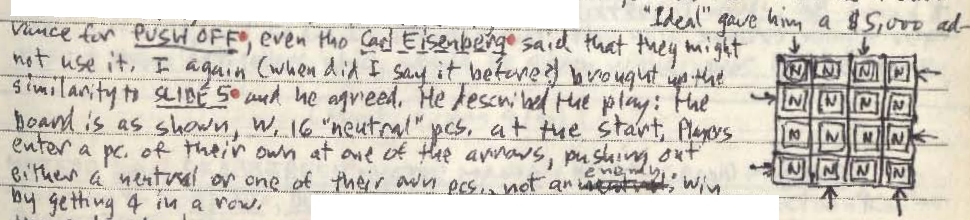 "Ideal" gave him a $5,000 ad-
vance for PUSH OFF, even tho Carl Eisenberg said that they might
not use it. I again (when did I say it before?) brought up the
similarity to SLIDE 5 and he agreed. He described the play: the
board is as shown, w. 16 "neutral" pcs. at the start, Players
enter a pc. of their own at one of the arrows, pushing out
either a neutral or one of their own pcs., not an enemy; win
by getting 4 in a row.
N N N N
N N N N
N N N N
N N N N